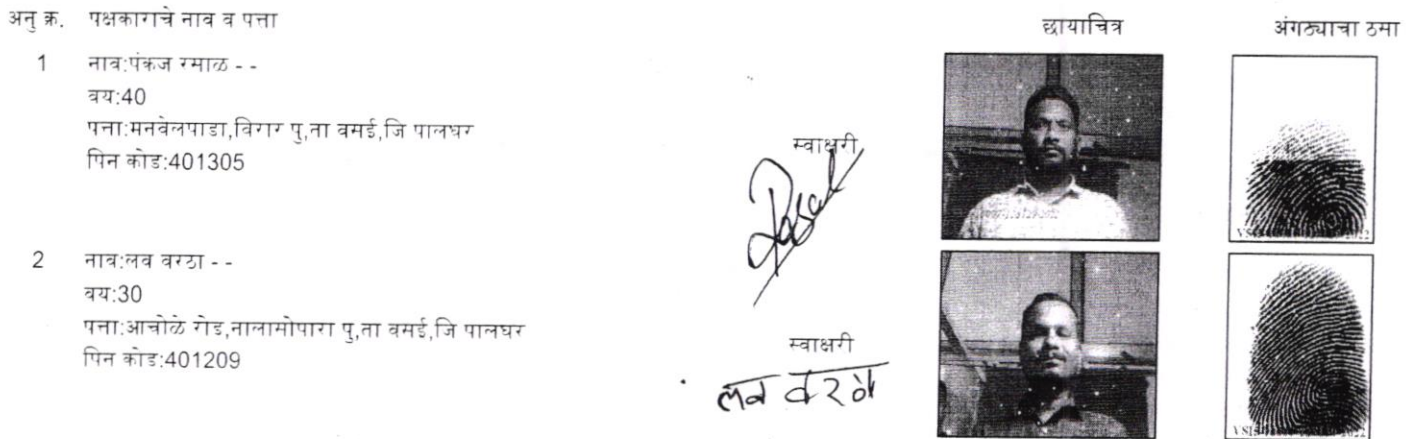 अनु क्र. पक्षकाराचे नाव व पत्ता
छायाचित्र
अंगठ्याचा ठसा
1 नाव:पंकज रसाळ - -
वय:40
पत्ता:मनवेलपाडा,विरार पु,ता वसई,जि पालघर
पिन कोड:401305
स्वाक्षरी
2 नाव:लव वरठा - -
वय:30
पत्ता:आचोळे रोड,नालासोपारा पु,ता वसई,जि पालघर
पिन कोड:401209
स्वाक्षरी
लव वरठा